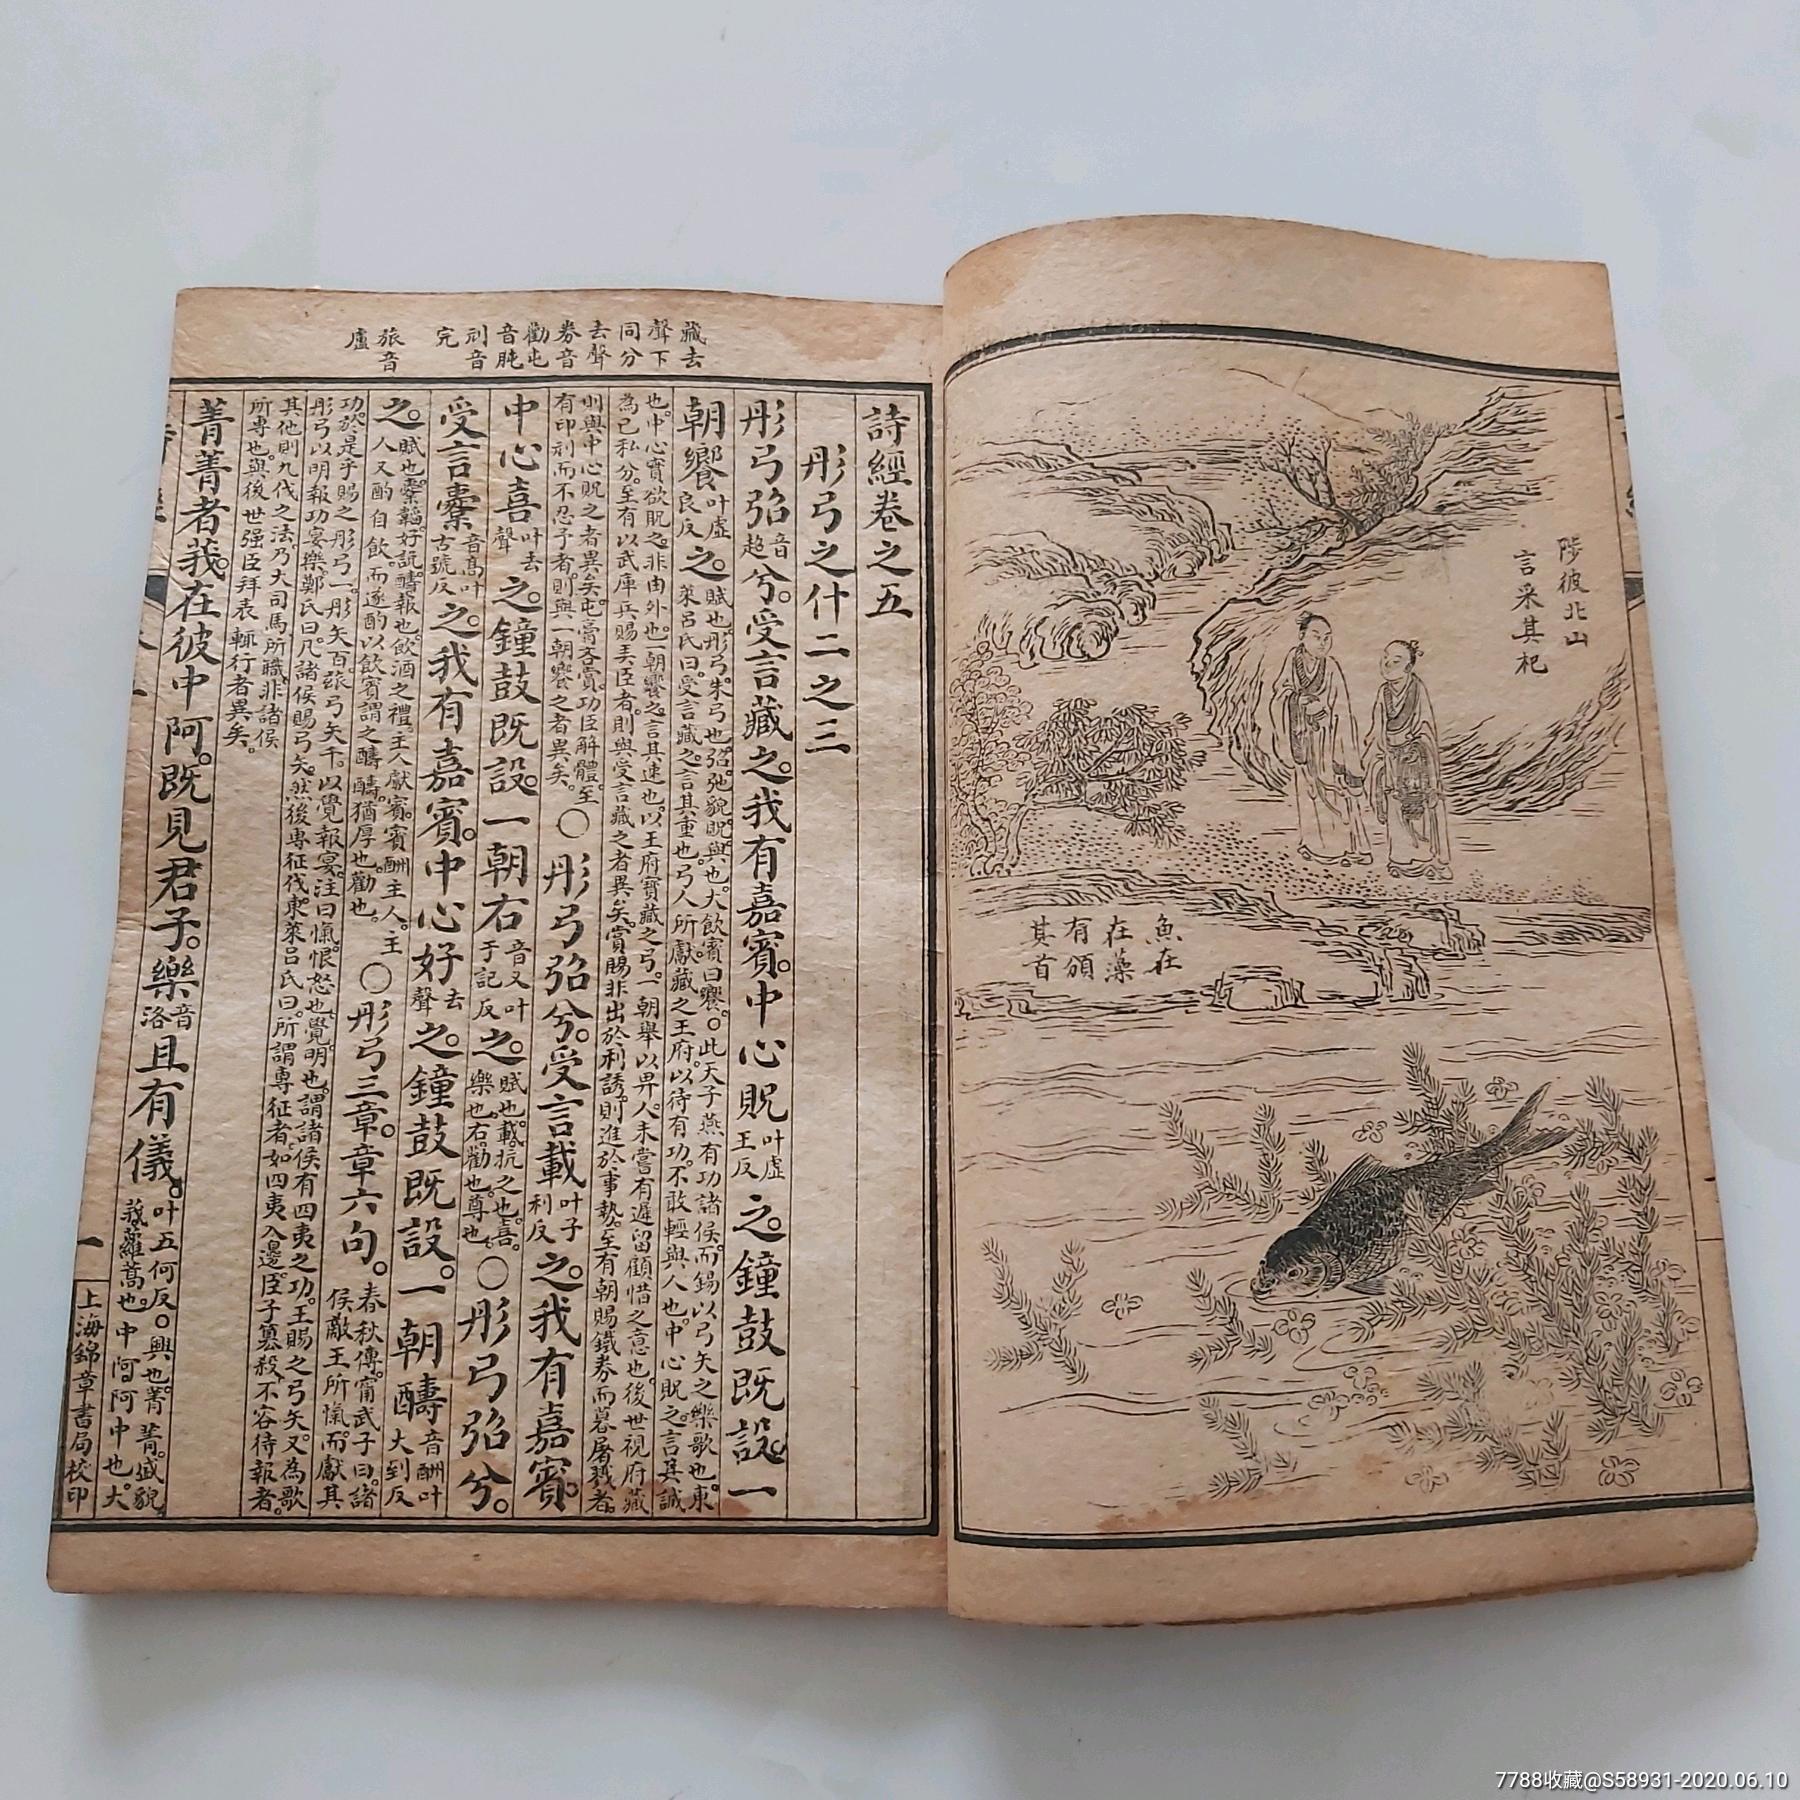 陟彼北山
言采其杞
魚在
在藻
有頒
其首
藏去
聲下
同分
去聲
券音
勸屯
音肫
刓音
完
旅音
盧
詩經卷之五
彤弓之什二之三
彤弓弨音超兮。受言藏之。我有嘉賓。中心貺叶虛王反之。鐘鼓既設。一
朝饗叶虛良反之。賦也。彤弓。朱弓也。弨。弛貌。貺。與也。大飲賓曰饗。○此天子燕有功諸侯。而錫以弓矢之樂歌也。東萊呂氏曰。受言藏之。言其重也。弓人所獻。藏之王府。以待有功。不敢輕與人也。中心貺之。言其誠
也。中心實欲貺之。非由外也。一朝饗之。言其速也。以王府寶藏之弓。一朝舉以畀人。未嘗有遲留顧惜之意也。後世視府藏為己私分。至有以武庫兵賜弄臣者。則與受言藏之者異矣。賞賜非出於利誘。則於事勢。至有朝賜鐵券而暮屠戮者。
則與中心貺之者異矣。屯膏吝賞。功臣解體。至有印刓而不忍予者。則與一朝饗之者異矣。○彤弓弨兮。受言載叶子利反之。我有嘉賓。
中心喜叶去聲之。鐘鼓既設。一朝右音又叶于記反之。賦也。載。抗之也。喜。樂也。右。勸也。尊也。○彤弓弨兮。
受言櫜音高叶古號反之。我有嘉賓。中心好去聲之。鐘鼓既設。一朝醻音酬叶大到反
之。賦也。櫜。韜。好。說。醻。報也。飲酒之禮。主人獻賓。賓酬主人。主人又酌自飲。而遂酌以飲賓。謂之醻。醻。猶厚也。勸也。○彤弓三章。章六句。春秋傳。甯武子曰。諸侯敵王所愾。而獻其
功。於是乎賜之彤弓一。彤矢百。玈弓矢千。以覺報宴。注曰。愾。恨怒也。覺。明也。謂諸侯有四夷之功。王賜之弓矢。又為歌彤弓以明報功宴樂。鄭氏曰。凡諸侯賜弓矢。然後專征伐。東萊呂氏曰。所謂專征者。如四夷入邊。臣子篡殺。不容待報者。
其他則九伐之法。乃大司馬所職。非諸侯所專也。與後世强臣拜表輒行者異矣。
菁菁者莪。在彼中阿。既見君子。樂音洛且有儀。叶五何反。○興也。菁菁。盛貌。莪。蘿蒿也。中阿。阿中也。大
一
上海錦章書局校印
7788收藏@S58931-2020.06.10